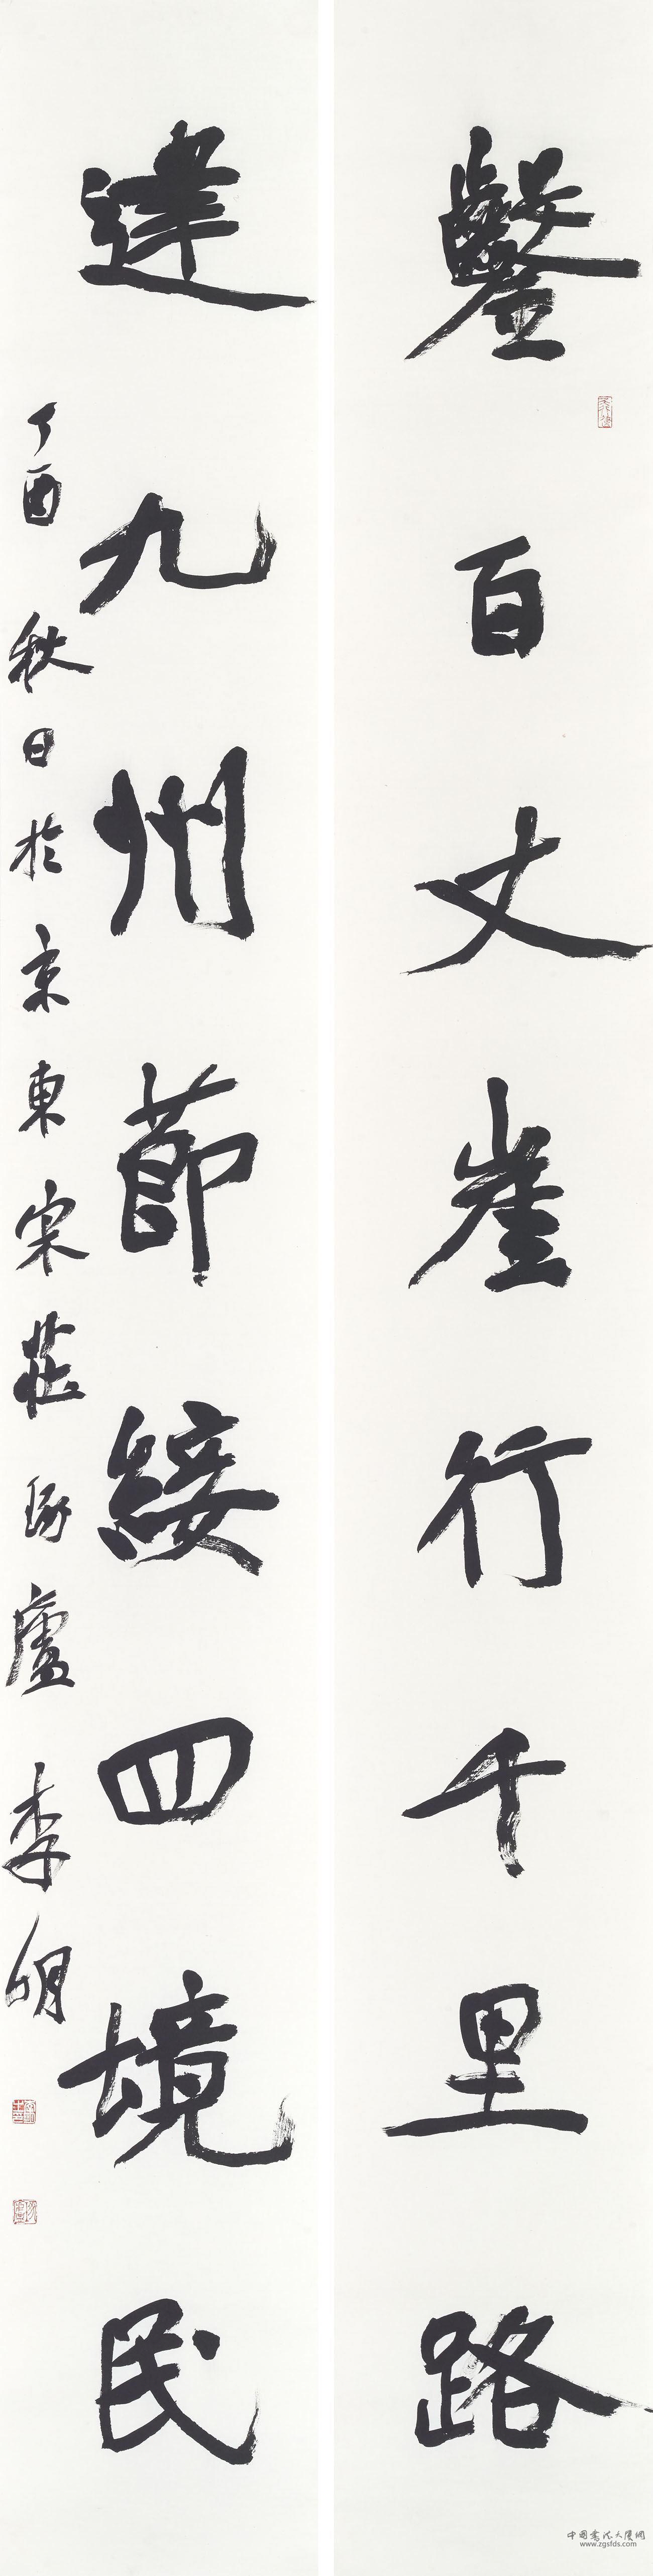 鑿百丈崖行千里路
達九州節綏四境民
丁酉秋日於京東宋莊琢廬李明
中国书法大厦网
www.zgsfds.com